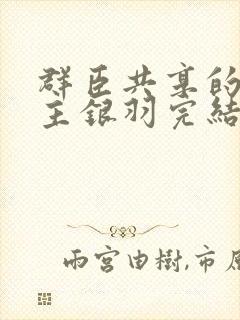 群臣共享的
主銀羽完結
雨宮由樹,市原